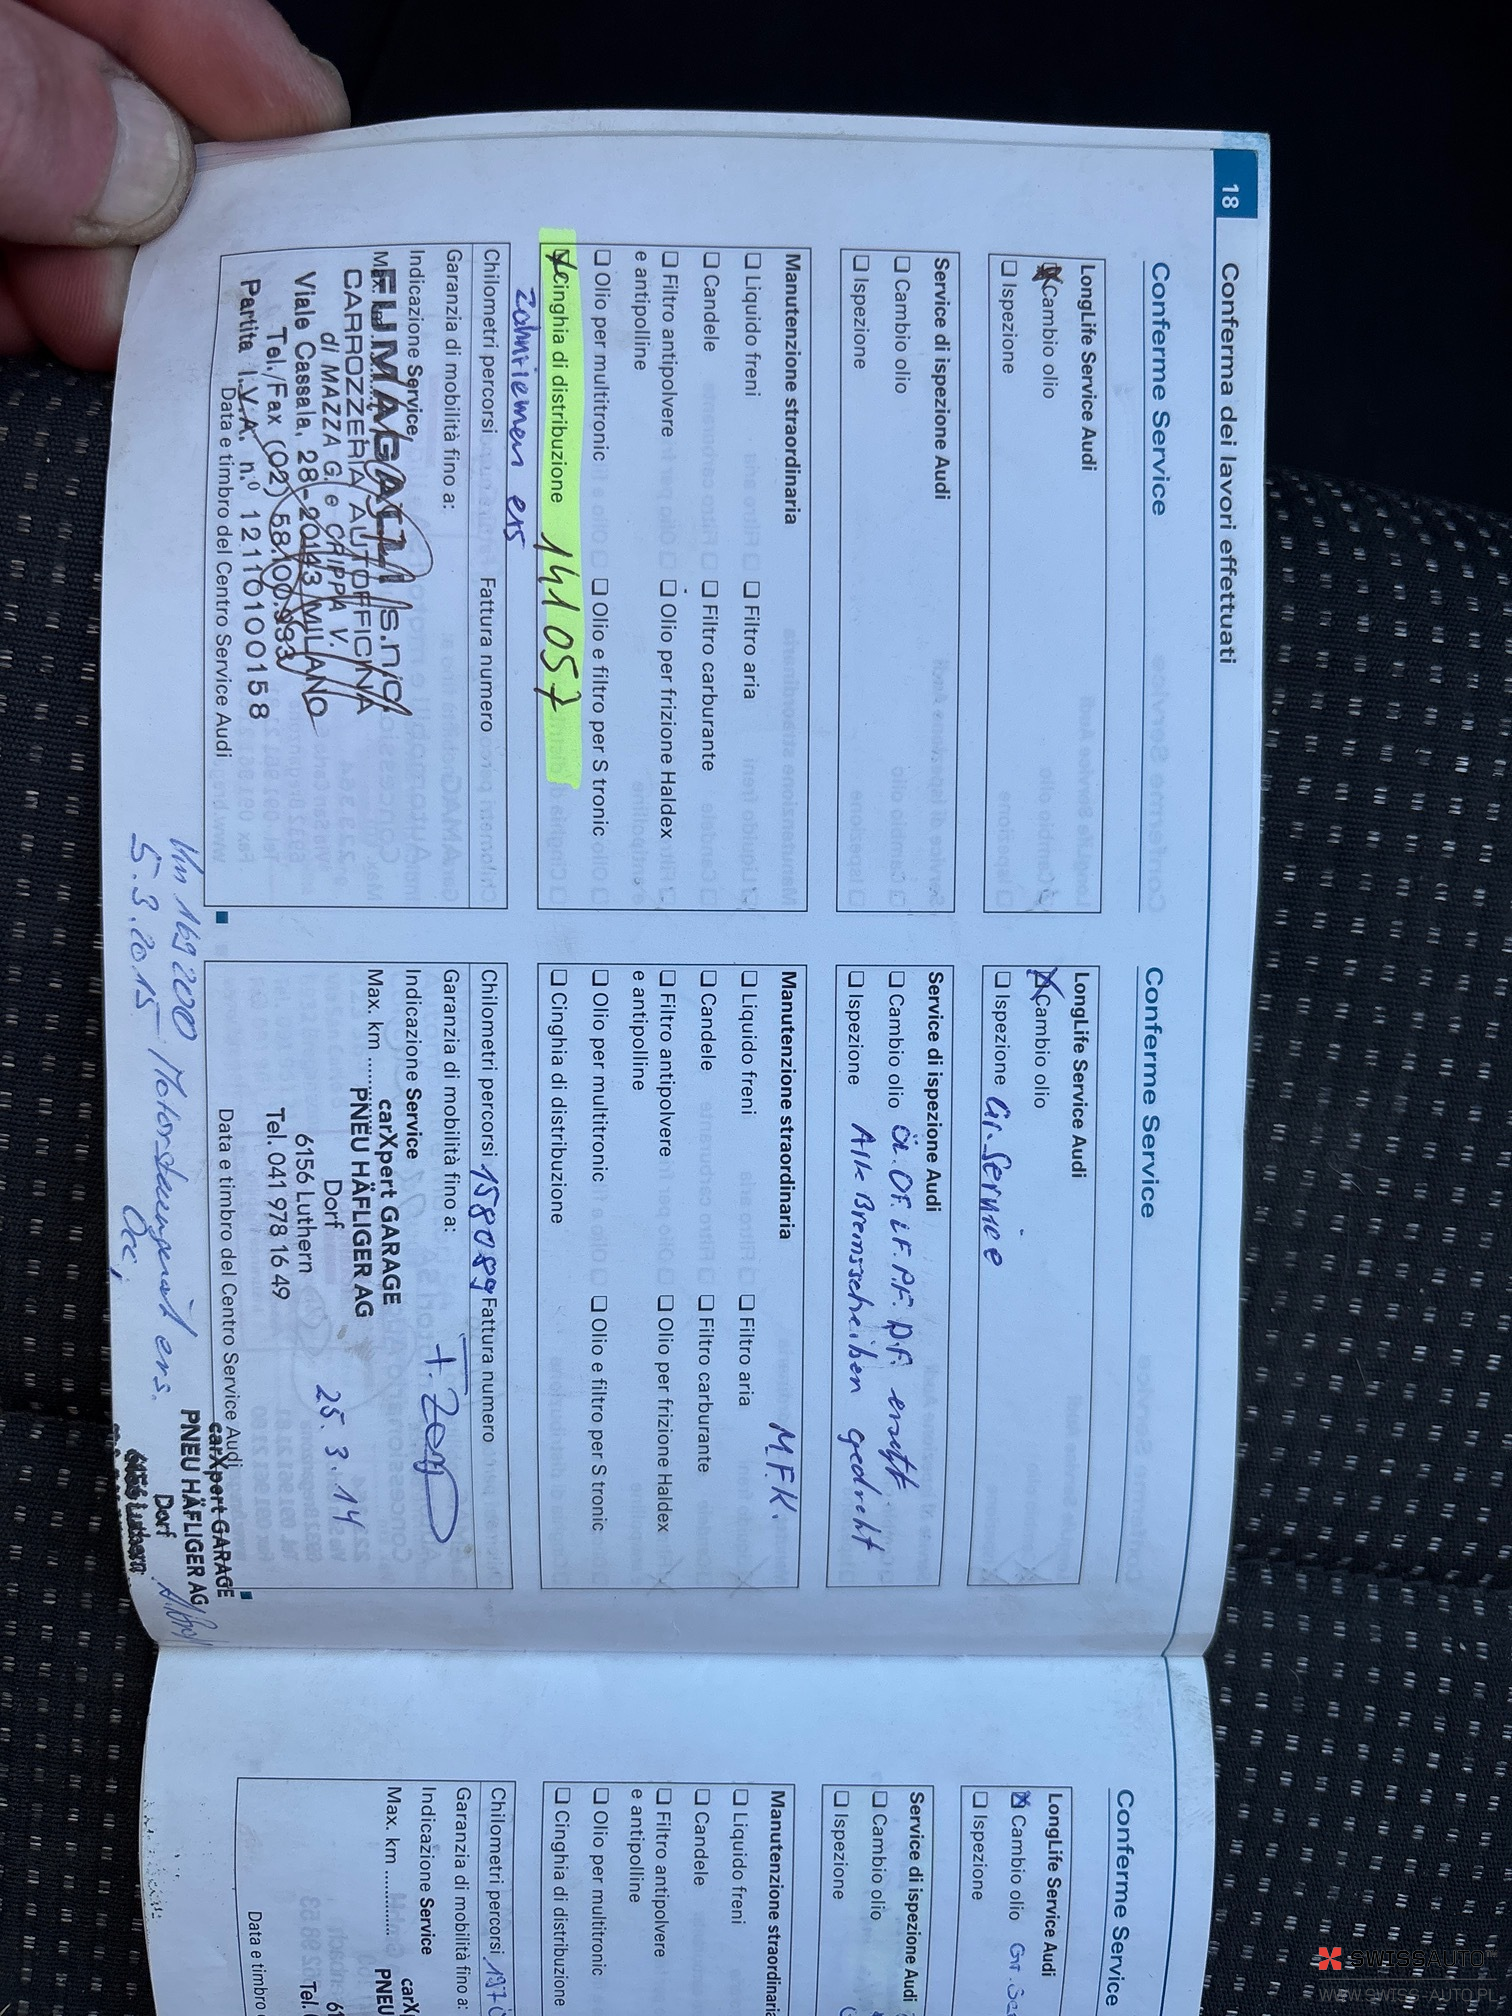 18 Conferma dei lavori effettuati
Conferme Service
LongLife Service Audi
Cambio olio
Ispezione
Service di ispezione Audi
Cambio olio
Ispezione
Manutenzione straordinaria
Liquido freni Filtro aria
Candele Filtro carburante
Filtro antipolvere Olio per frizione Haldex
e antipolline
Olio per multitronic Olio e filtro per S tronic
Cinghia di distribuzione 141057
Zahnriemen ers
Chilometri percorsi Fattura numero
Garanzia di mobilità fino a:
Indicazione Service
FUMAGALLI s.n.c.
CARROZZERIA AUTOFFICINA
di MAZZA G. e CRIPPA V.
Viale Cassala, 28-20143 MILANO
Tel./Fax (02) 58.100.933
Partita I.V.A. n.º 12110100158
Data e timbro del Centro Service Audi
Conferme Service
LongLife Service Audi
Cambio olio
Ispezione Gr. Service
Service di ispezione Audi
Cambio olio Öl. OF. LF. PF. DF. ersetzt
Ispezione Alle Bremsscheiben gedreht
Manutenzione straordinaria M.F.K.
Liquido freni Filtro aria
Candele Filtro carburante
Filtro antipolvere Olio per frizione Haldex
e antipolline
Olio per multitronic Olio e filtro per S tronic
Cinghia di distribuzione
Chilometri percorsi 158089 Fattura numero
Garanzia di mobilità fino a:
Indicazione Service
Max. km ........
carXpert GARAGE
PNEU HÄFLIGER AG
Dorf
6156 Luthern 25.3.14
Tel. 041 978 16 49
Data e timbro del Centro Service Audi
Km 169200 Motorsteuergerät ers.
5.3.2015 Occ,
carXpert GARAGE
PNEU HÄFLIGER AG
Dorf
6156 Luthern
Conferme Service
LongLife Service Audi
Cambio olio Gr. Ser
Ispezione
Service di ispezione Audi
Cambio olio
Ispezione
Manutenzione straordinaria
Liquido freni
Candele
Filtro antipolvere
e antipolline
Olio per multitronic
Cinghia di distribuzione
Chilometri percorsi 197
Garanzia di mobilità fino a:
Indicazione Service
Max. km ............
carX
PNEU
61
Tel.
Data e timbro
SWISSAUTO
WWW.SWISS-AUTO.PL